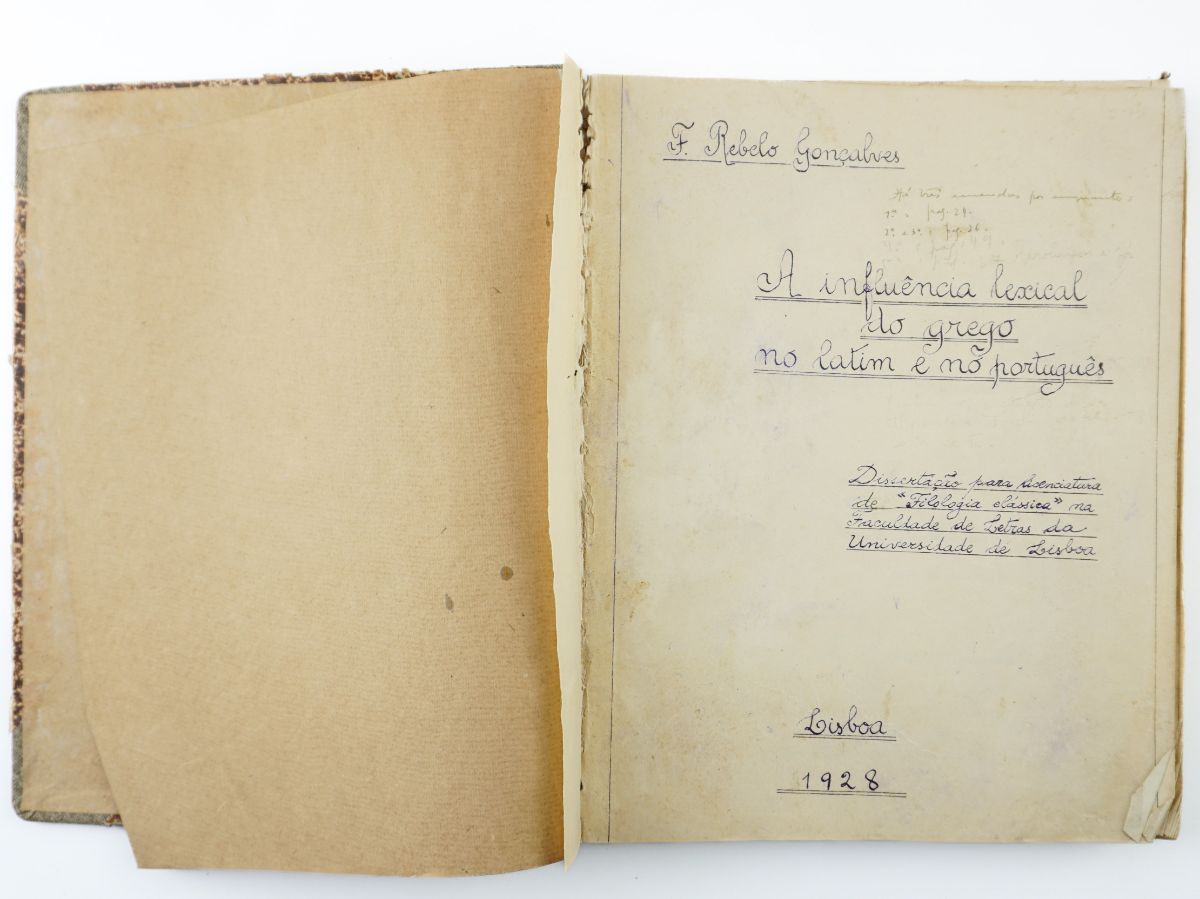 F. Rebelo Gonçalves
Há três emendas por enquanto:
1ª, pag. 24.
2ª e 3ª, pag. 26.
A influência lexical
do grego
no latim e no português
Dissertação para licenciatura
de "Filologia clássica" na
Faculdade de Letras da
Universidade de Lisboa
Lisboa
1928